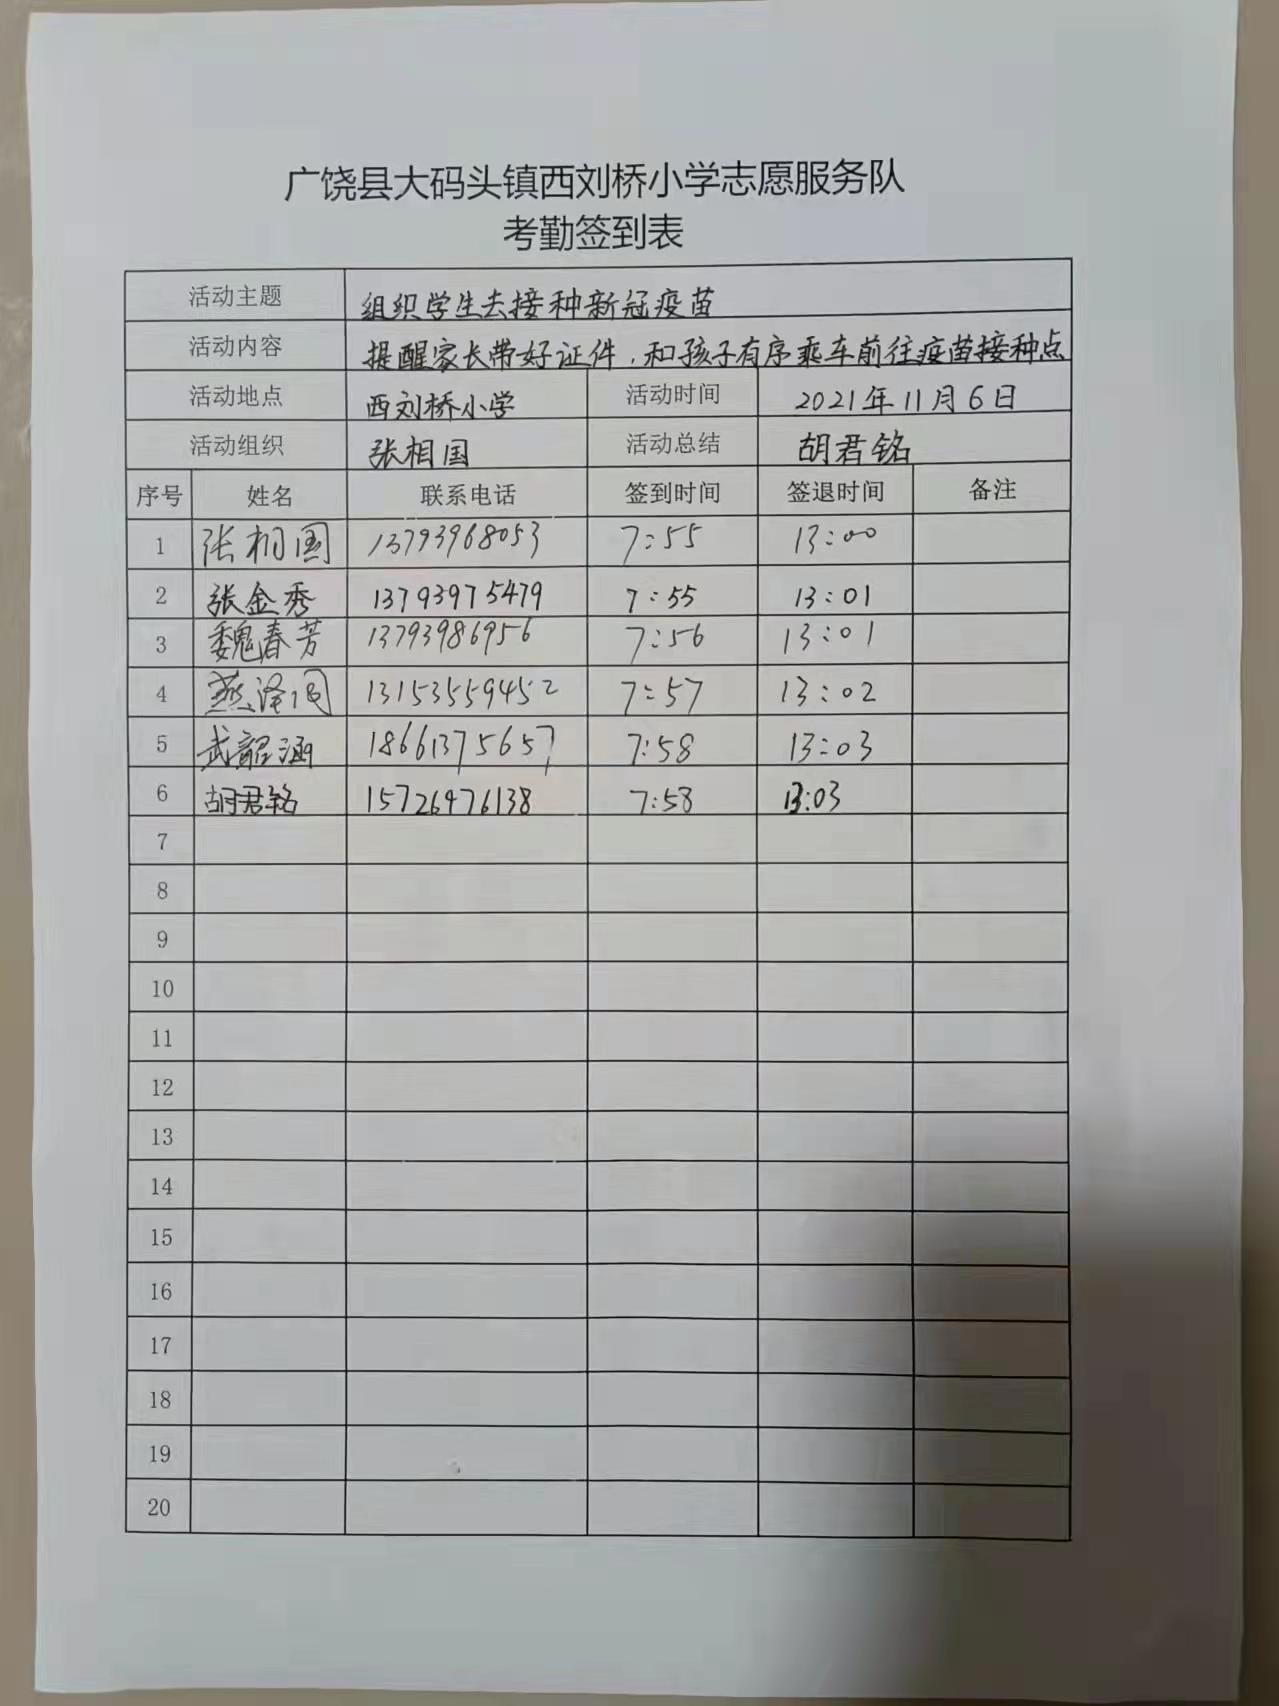 广饶县大码头镇西刘桥小学志愿服务队
考勤签到表
活动主题 组织学生去接种新冠疫苗
活动内容 提醒家长带好证件，和孩子有序乘车前往疫苗接种点
活动地点 西刘桥小学 活动时间 2021年11月6日
活动组织 张相国 活动总结 胡君铭
序号 姓名 联系电话 签到时间 签退时间 备注
1 张相国 13793968053 7:55 13:00
2 张金秀 13793975479 7:55 13:01
3 魏春芳 13793986956 7:56 13:01
4 13153559452 7:57 13:02
5 武韶涵 18661375657 7:58 13:03
6 胡君铭 15726476138 7:58 13:03
7
8
9
10
11
12
13
14
15
16
17
18
19
20